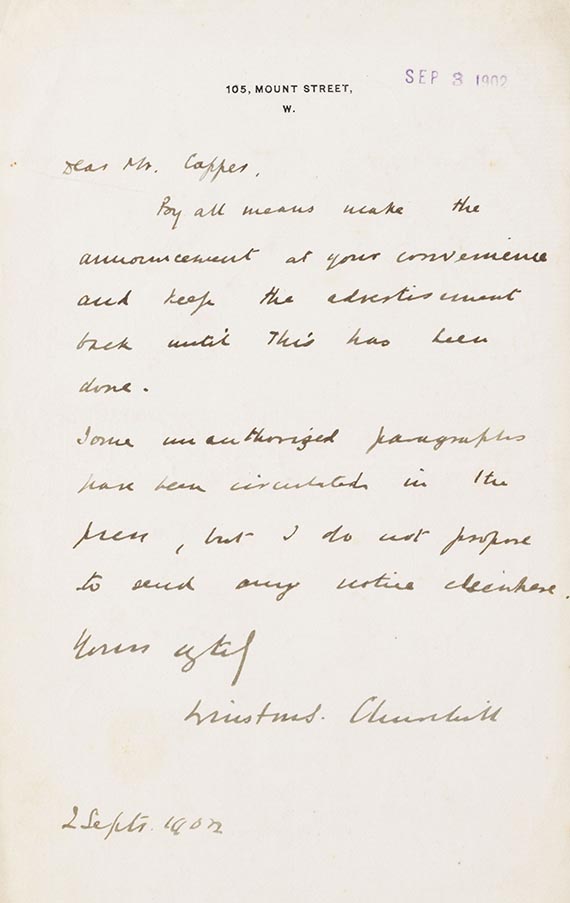 105, MOUNT STREET,
W.
SEP 3 1902
Dear Mr.
By all means make the
announcement at your convenience
and keep the advertisement
back until this has been
done.
Some unauthorized paragraphs
have been circulated in the
press, but I do not propose
to send any notice elsewhere.
Yours
Winston S. Churchill
2 Sept. 1902